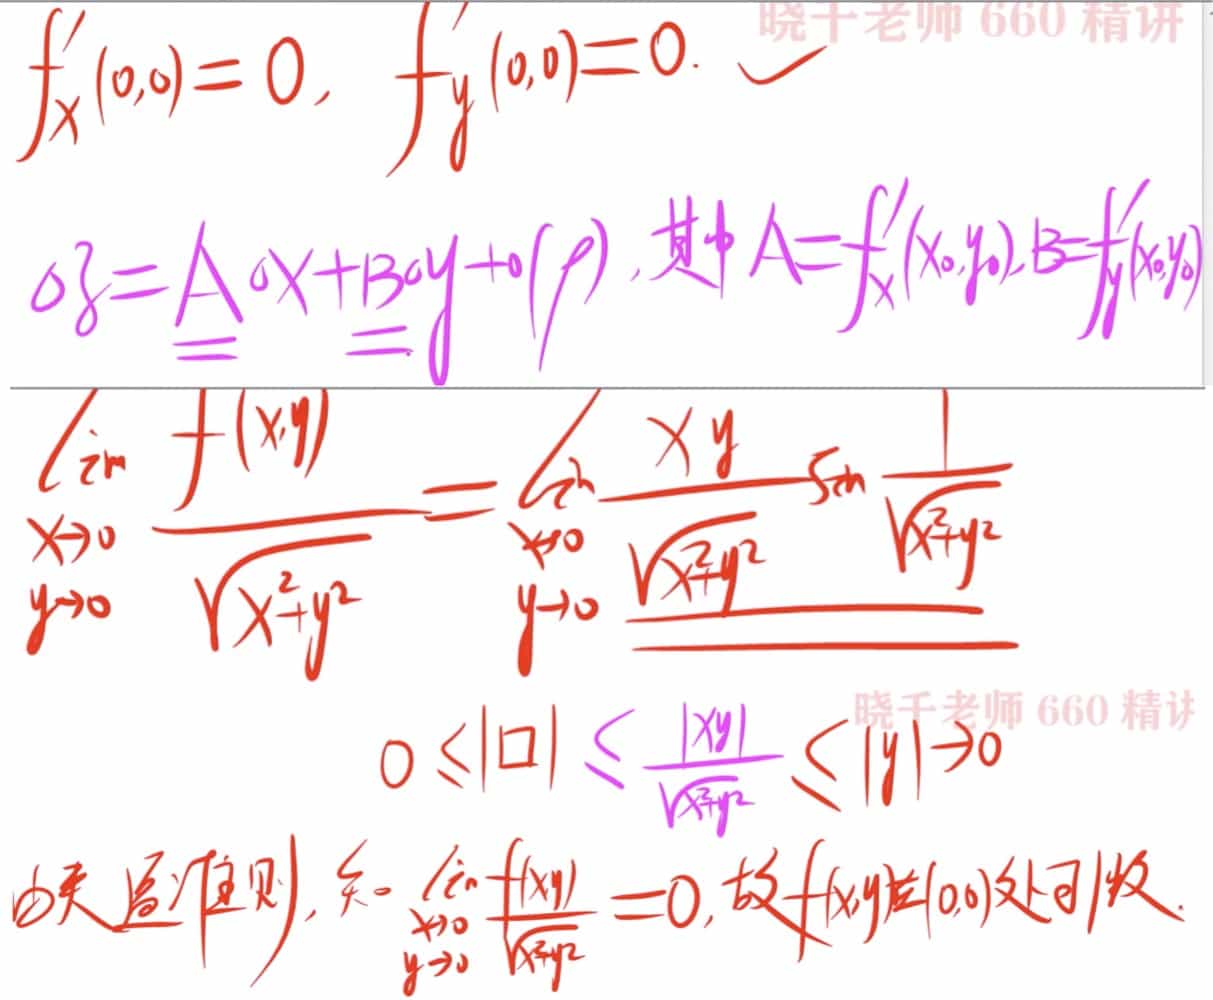 晓千老师 660 精讲
f'x(0,0)=0, f'y(0,0)=0. ✓
Δz=AΔx+BΔy+o(ρ), 其中 A=f'x(x₀,y₀), B=f'y(x₀,y₀)
lim x→0 y→0 f(x,y)/√(x²+y²) = lim x→0 y→0 xy/√(x²+y²) sin 1/√(x²+y²)
晓千老师 660 精讲
0≤|□|≤|xy|/√(x²+y²)≤|y|→0
由夹逼准则, 知 lim x→0 y→0 f(x,y)/√(x²+y²) =0, 故f(x,y)在(0,0)处可微.